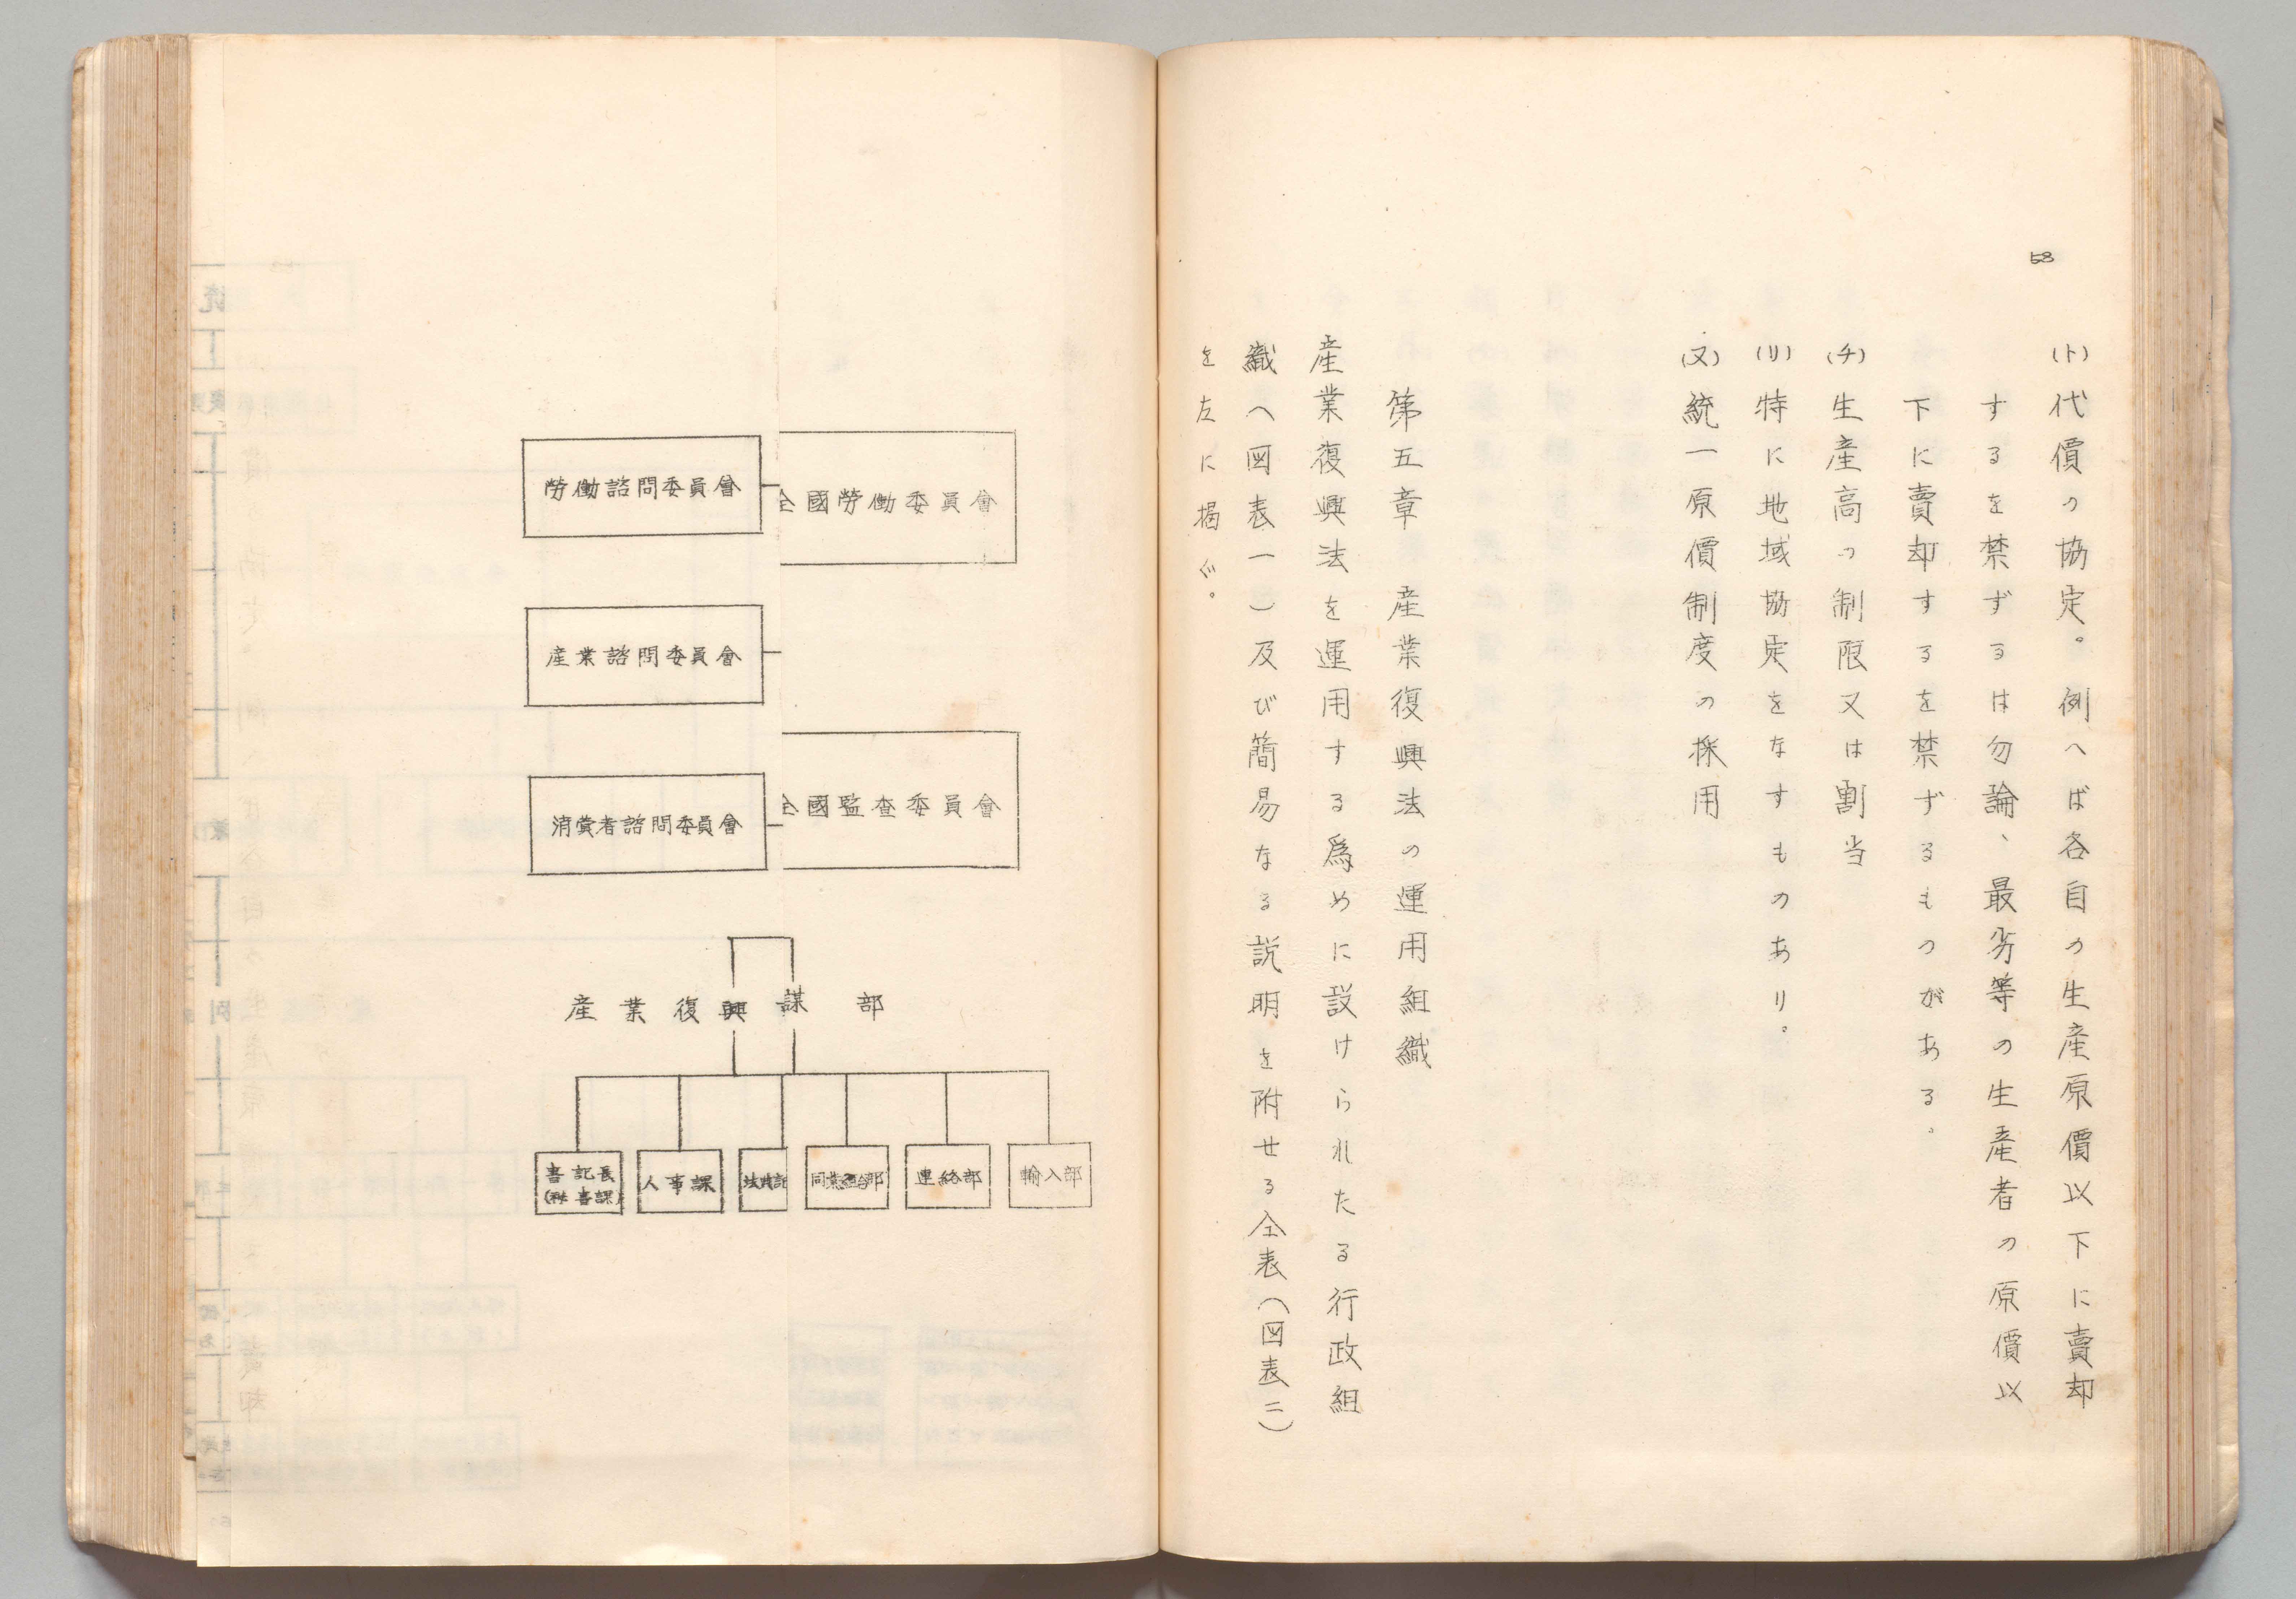 58
(ト)代價の協定。例へば各自の生産原價以下に賣却
するを禁ずるは勿論、最劣等の生産者の原價以
下に賣却するを禁ずるものがある。
(チ)生産高の制限又は割当
(リ)特に地域協定をなすものあり。
(ヌ)統一原價制度の採用
第五章 産業復興法の運用組織
産業復興法を運用する爲めに設けられたる行政組
織(図表一)及び簡易なる説明を附せる全表(図表二)
を左に揭ぐ。
全國勞働委員會
勞働諮問委員會
産業諮問委員會
全國監査委員會
消費者諮問委員會
産業復興
部
輸入部
連絡部
同業組合部
人事課
書記長
(秘書課)